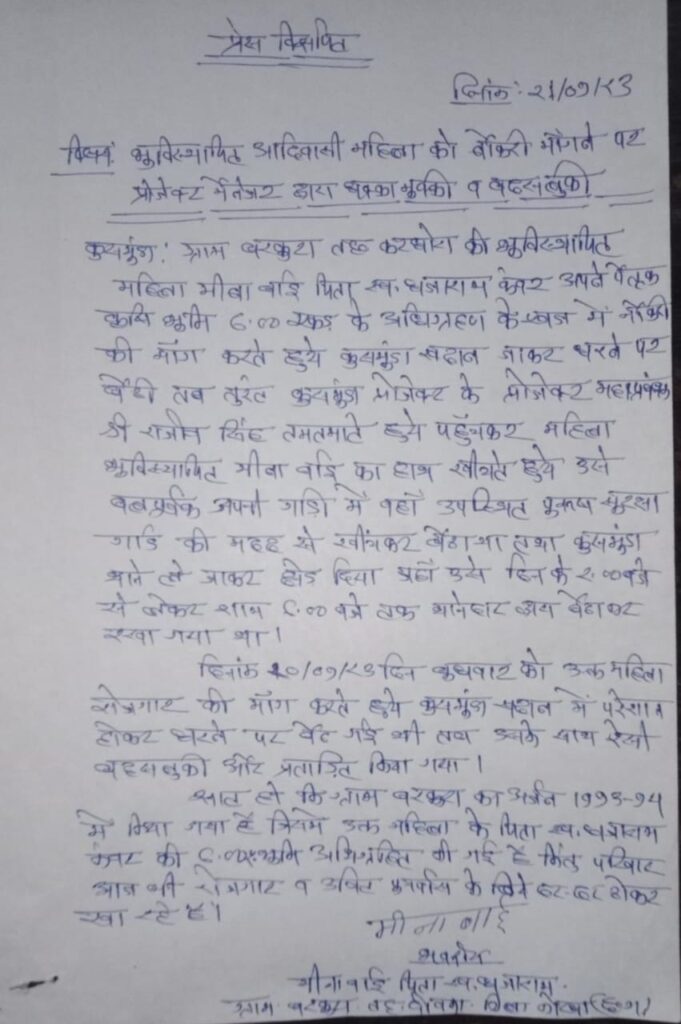 प्रेस विज्ञप्ति
दिनांक: 21/09/23
विषय: भूविस्थापित आदिवासी महिला को नौकरी माँगने पर
प्रोजेक्ट मैनेजर द्वारा धक्का मुक्की व बदसलुकी
कुसमुंडा: ग्राम बरकुटा तह० करघोरा की भूविस्थापित
महिला मीना बाई पिता स्व. धजाराम कंवर अपने पैतृक
कृषि भूमि 6.00 एकड़ के अधिग्रहण के एवज में नौकरी
की माँग करते हुये कुसमुंडा खदान जाकर धरने पर
बैठी तब तुरंत कुसमुंडा प्रोजेक्ट के प्रोजेक्ट महाप्रबंधक
श्री राजीव सिंह तमतमाते हुये पहुँचकर महिला
भूविस्थापित मीना बाई का हाथ खींचते हुये उसे
बलपूर्वक अपनी गाड़ी में वहाँ उपस्थित पुरूष सुरक्षा
गार्ड की मदद से खींचकर बैठाया तथा कुसमुंडा
थाने ले जाकर छोड़ दिया जहाँ उसे दिन के 2.00 बजे
से लेकर शाम 6.00 बजे तक थानेदार द्वारा बैठाकर
रखा गया था।
दिनांक 20/09/23 दिन बुधवार को उक्त महिला
रोजगार की माँग करते हुये कुसमुंडा खदान में परेशान
होकर धरने पर बैठ गई थी तब उनके साथ ऐसी
बदसलुकी और प्रताड़ित किया गया।
ज्ञात हो कि ग्राम बरकुटा का अर्जन 1993-94
में किया गया है जिसमें उक्त महिला के पिता स्व. धजाराम
कंवर की भूमि अधिग्रहित की गई है किंतु परिवार
आज भी रोजगार व उचित पुनर्वास के लिये दर-दर ठोकर
खा रहे है।
मीना बाई
भवदीय
मीना बाई पिता स्व. धजाराम
ग्राम बरकुटा तह. जिला कोरबा (छ.ग.)